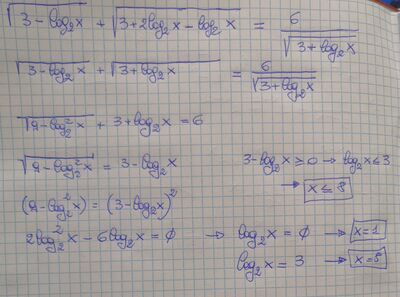 √(3-log₂x) + √(3+2log₂x-log₂x) = 6/√(3+log₂x)
√(3-log₂x) + √(3+log₂x) = 6/√(3+log₂x)
√(9-log₂²x) + 3+log₂x = 6
√(9-log₂²x) = 3-log₂x
3-log₂x ≥ 0 → log₂x ≤ 3
→ x ≤ 8
(9-log₂²x) = (3-log₂x)²
2log₂²x - 6log₂x = 0 → log₂x = 0 → x=1
log₂x = 3 → x=8